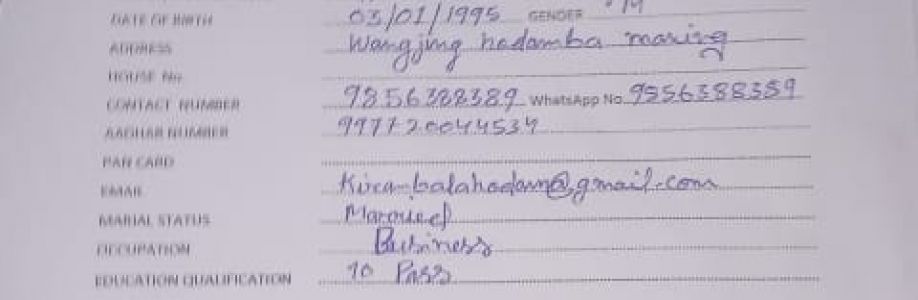 DATE OF BIRTH 03/01/1995 GENDER M
ADDRESS Wangjing hodamba maring
HOUSE No.
CONTACT NUMBER 9856388389 WhatsApp No. 9856388389
AADHAR NUMBER 997720044534
PAN CARD
EMAIL
MARIAL STATUS Marquieef
OCCUPATION Business
EDUCATION QUALIFICATION 10 Pass